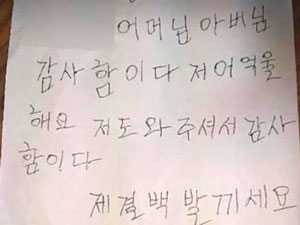 어머님 아버님
감사 함이다 저어억울
해요 저도와주셔서 감사
함이다
제결백 발끼세요